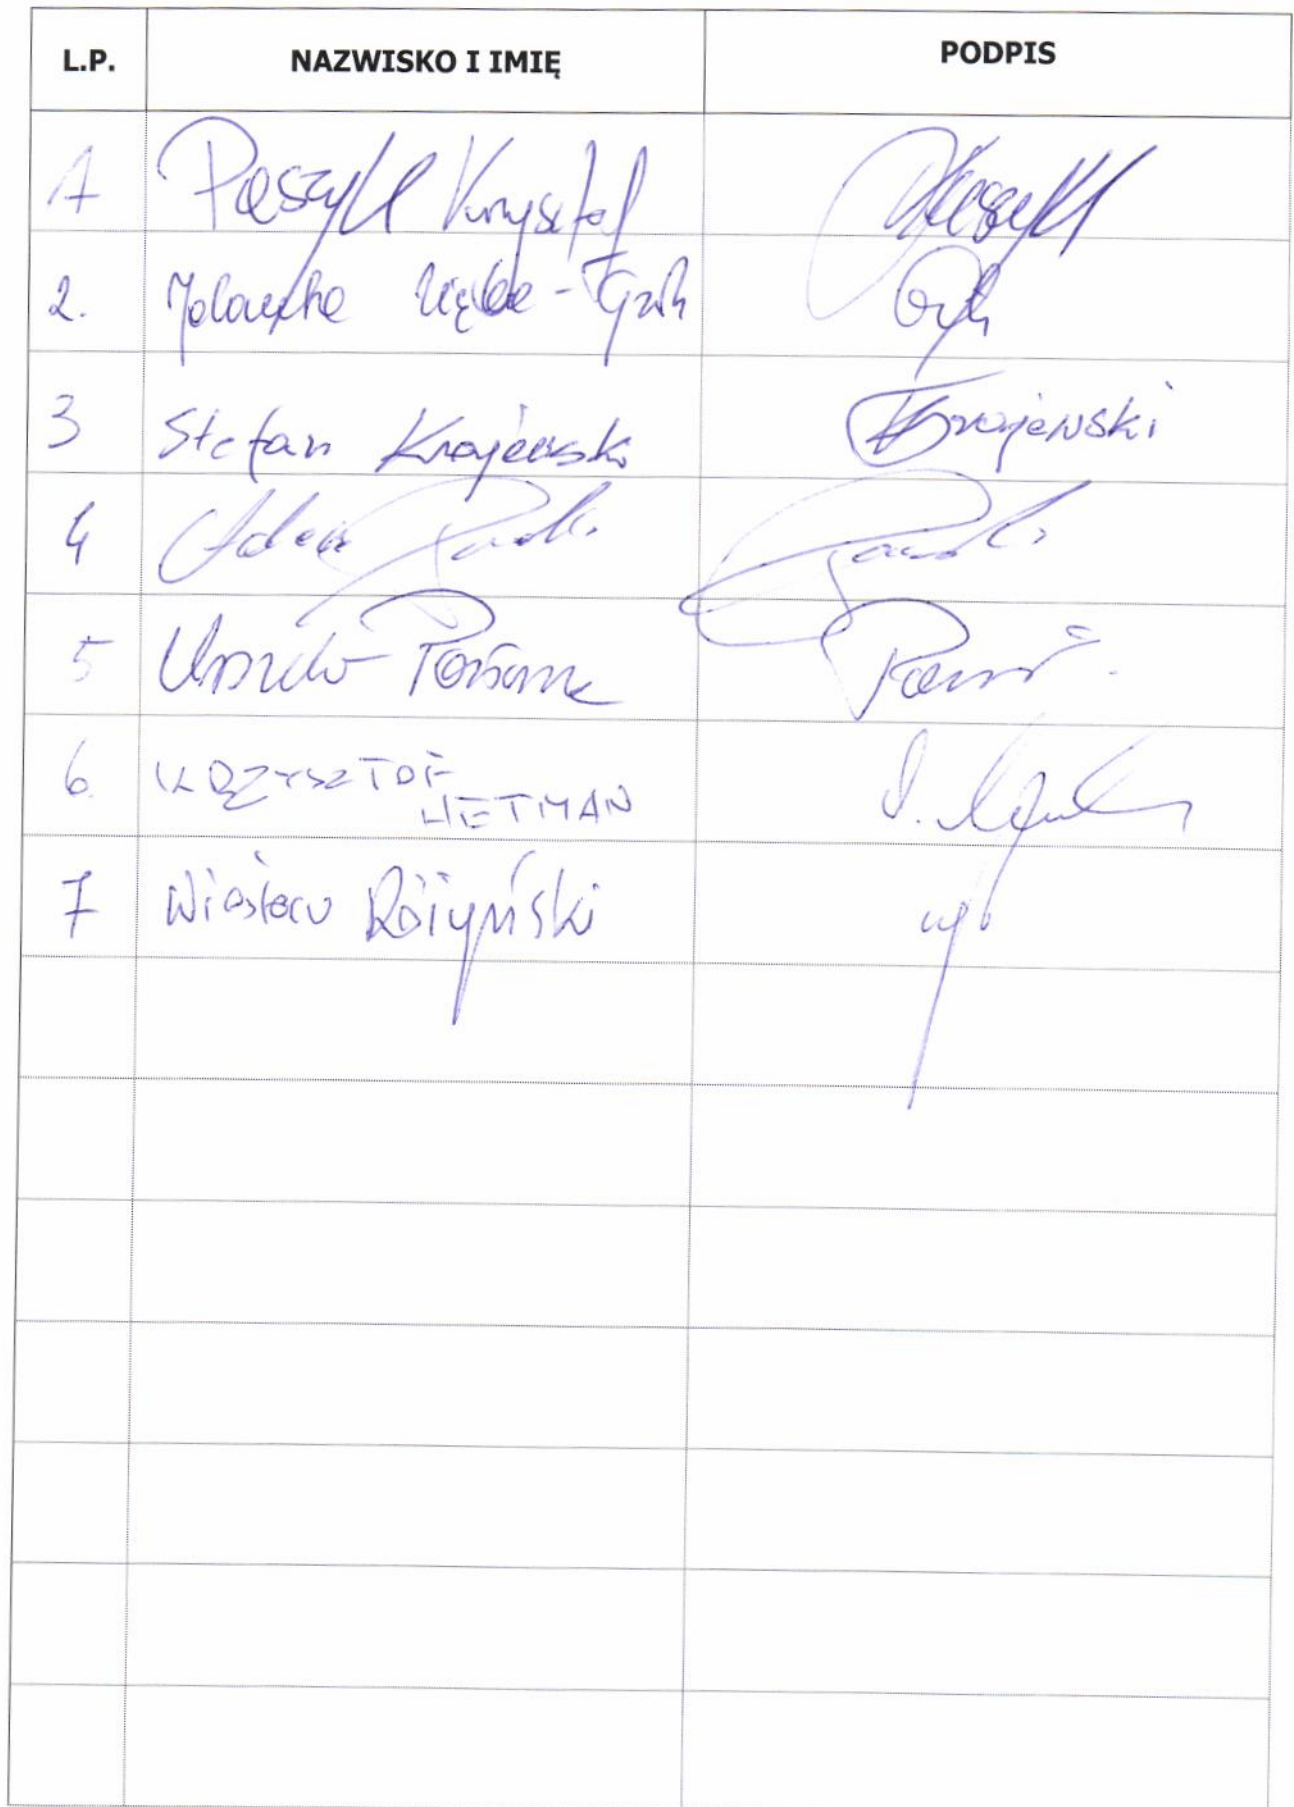 L.P. NAZWISKO I IMIĘ PODPIS
1 Paszyk Krzysztof Paszyk
2. Jolanta Zięba-Gzik Gzik
3 Stefan Krajewski Krajewski
4 Adam
5 Urszula
6. KRZYSZTOF
HETMAN
7 Wiesław Różyński